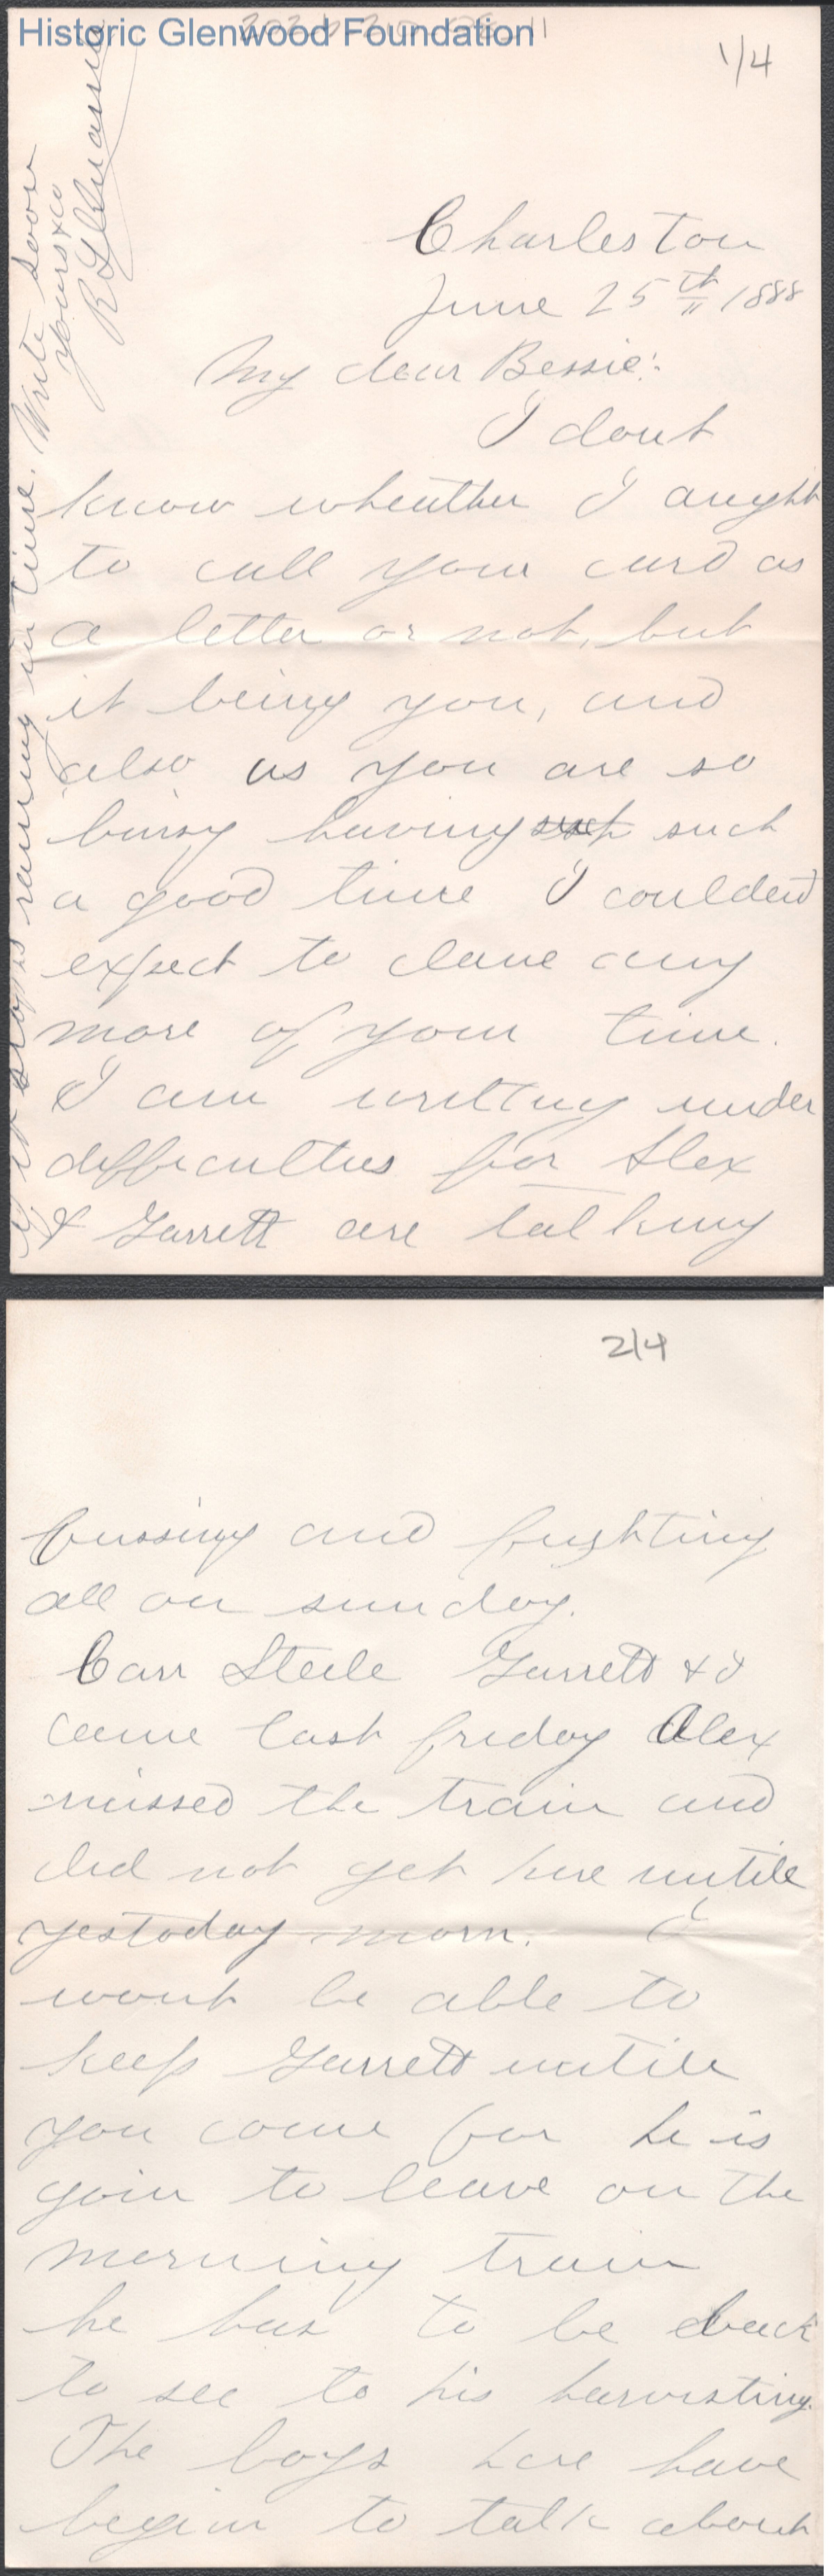 Historic Glenwood Foundation
1/4
Charleston
June 25th 1888
My dear Bessie:
I dont
know wheather I aught
to call your card as
a letter or not, but
it being you, and
also as you are so
buisy having such such
a good time I coulden
expect to clame any
more of your time.
I am writing under
difficultus for Alex
& Garrett are talking
if it stops raining in time. Write soon
yours &co
2/4
fussing and fughting
all on sunday.
Carr Steele Garrett & I
came last friday Alex
missed the train and
did not get here untile
yestoday morn. I
wont be able to
keep Garrett untile
you come for he is
goin to leave on the
morning train
he has to be back
to see to his harvisting.
The boys here have
begin to talk about